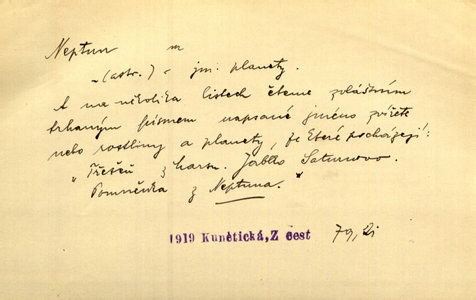 Neptun m
~ (astr.) - jm. planety.
A na několika listech čteme zvláštním
trhaným písmem napsané jméno zvířete
nebo rostliny a planety, ze které pocházejí:
" z Saturnovo.
Pomněnka z Neptuna."
1919 Kunětická, Z cest 79, 2i